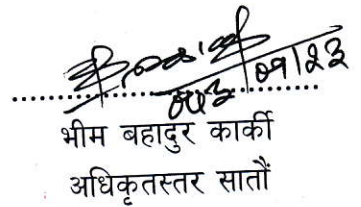 भीम बहादुर कार्की
अधिकृतस्तर सातौं